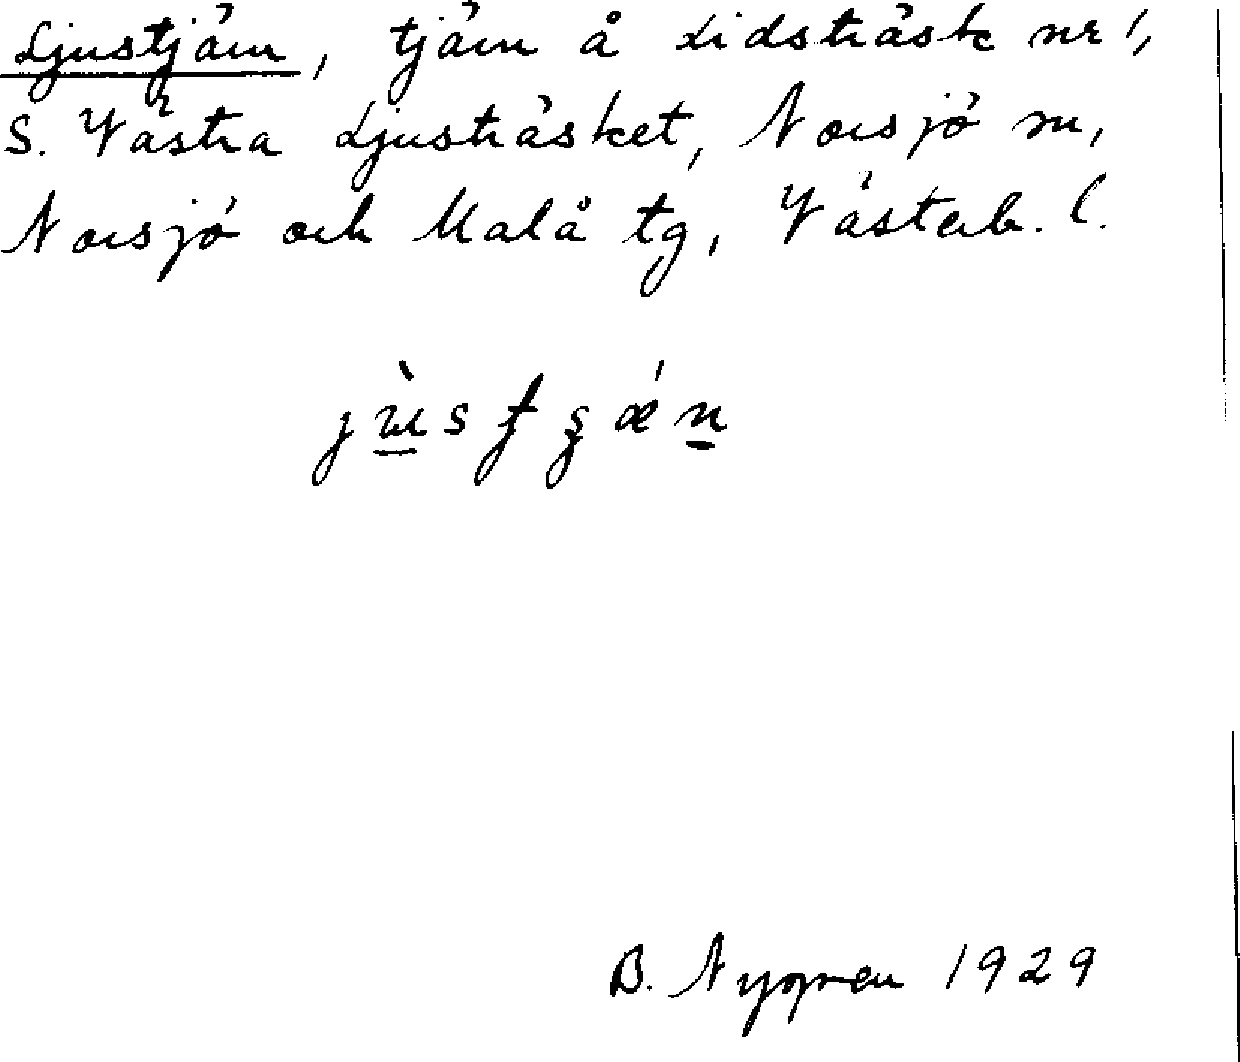 Ljustjärn, tjärn å Lidsträsk nr 1,
S. Västra Ljusträsket, Norsjö sn,
Norsjö och Malå tg, Västerb. l.
B. Nygren 1929